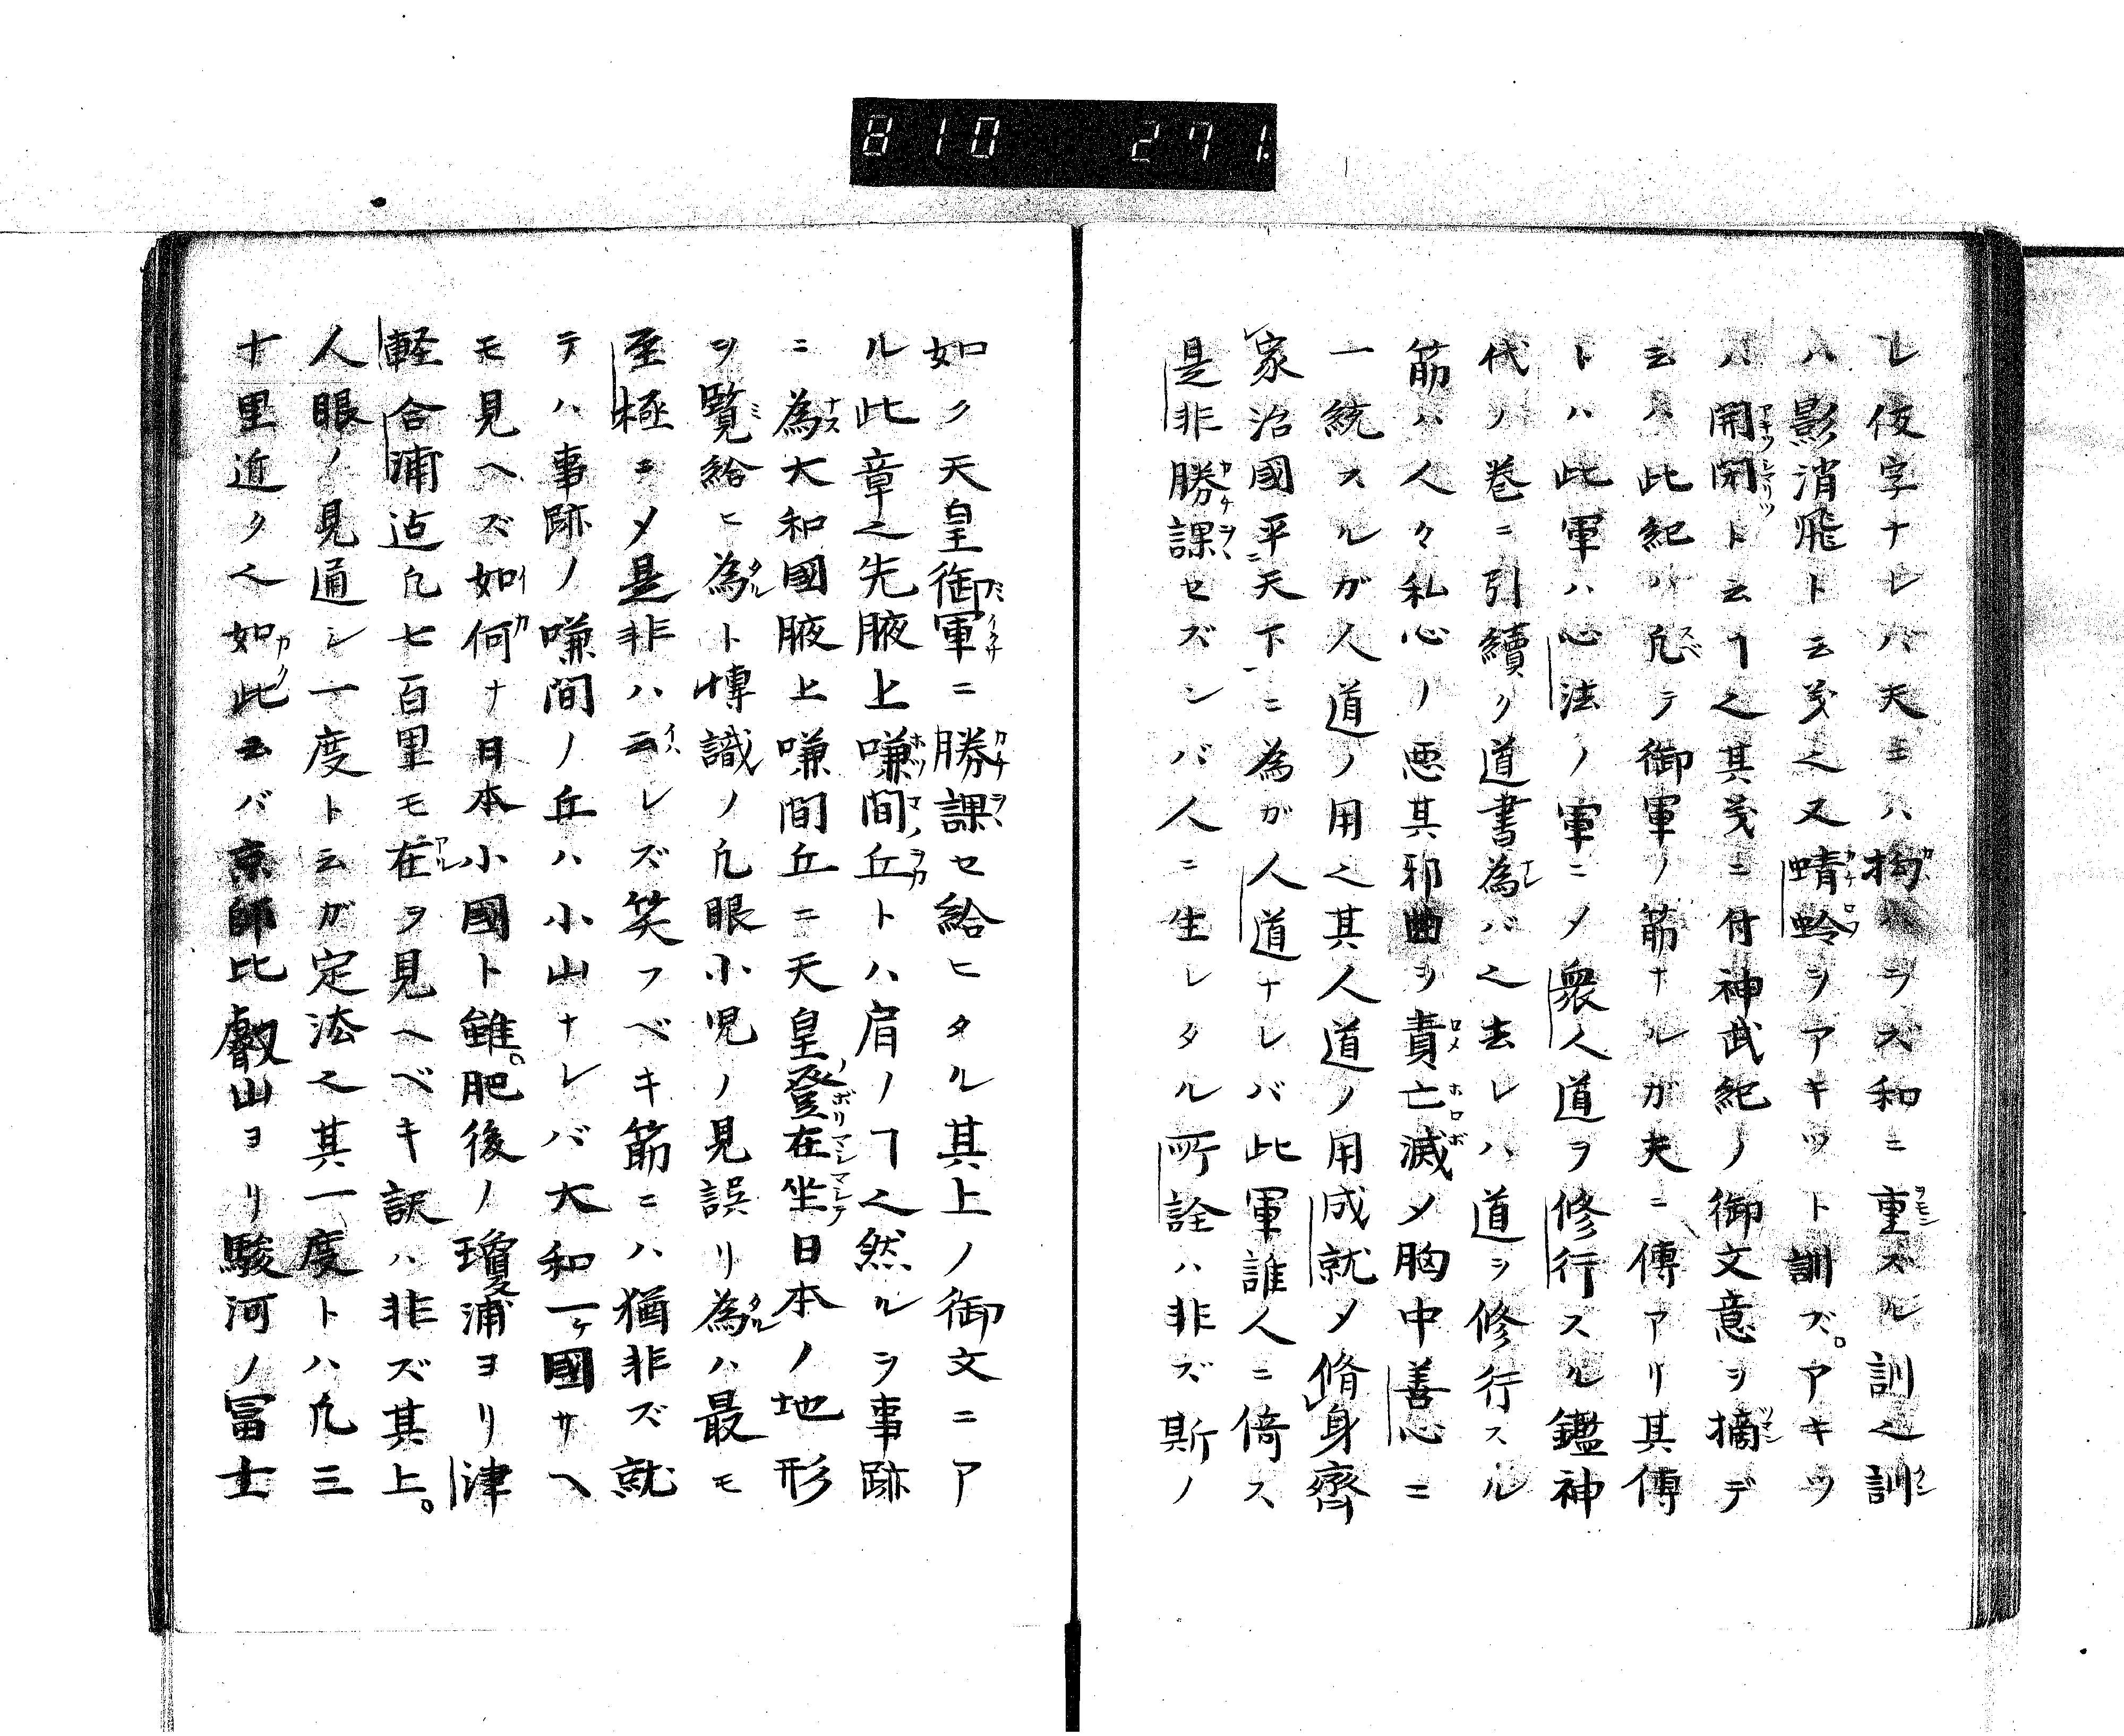 810 271.
レ仮字ナレバ天ヨハ拘ハラズ和ニ重スル訓之訓
ハ影消飛ト云㐧之又蜻蛉ヲアキツト訓ズ。アキツ
ハ開閇ト云ヿ之其㐧ニ付神武紀ノ御文意ヲ摘デ
云ハ此紀ハ凢テ御軍ノ筋ナルガ夫ニ傳アリ其傳
トハ此軍ハ心法ノ軍ニメ衆人道ヲ修行スル鑑神
代ノ巻ニ引續ク道書為バ之去レハ道ヲ修行スル
筋ハ人々私心ノ悪其邪曲ヲ責亡滅メ胸中善心ニ
一統スルガ人道ノ用之其人道ノ用成就メ脩身齊
家治國平天下ニ為ガ人道ナレバ此軍誰人ニ倚ス
是非勝課セズシバ人ニ生レタル所詮ハ非ズ斯ノ
如ク天皇御軍ニ勝課セ給ヒタル其上ノ御文ニア
ル此章之先腋上嗛間丘トハ肩ノヿ之然ルヲ事跡
ニ為大和國腋上嗛間丘ニ天皇登在坐日本ノ地形
ヲ覽給ヒ為ト博識ノ凢眼小児ノ見誤リ為ハ最モ
至極ニメ是非ハ云レズ笑フベキ筋ニハ猶非ズ就
テハ事跡ノ嗛間ノ丘ハ小山ナレバ大和一ケ國サヘ
モ見ヘズ如何ナ日本小國ト雖。肥後ノ瓊浦ヨリ津
軽合浦迠凢七百里モ在ヲ見ヘベキ訳ハ非ズ其上。
人眼ノ見通シ一度ト云ガ定法之其一度トハ凢三
十里近ク之如此云バ京師比叡山ヨリ駿河ノ冨士